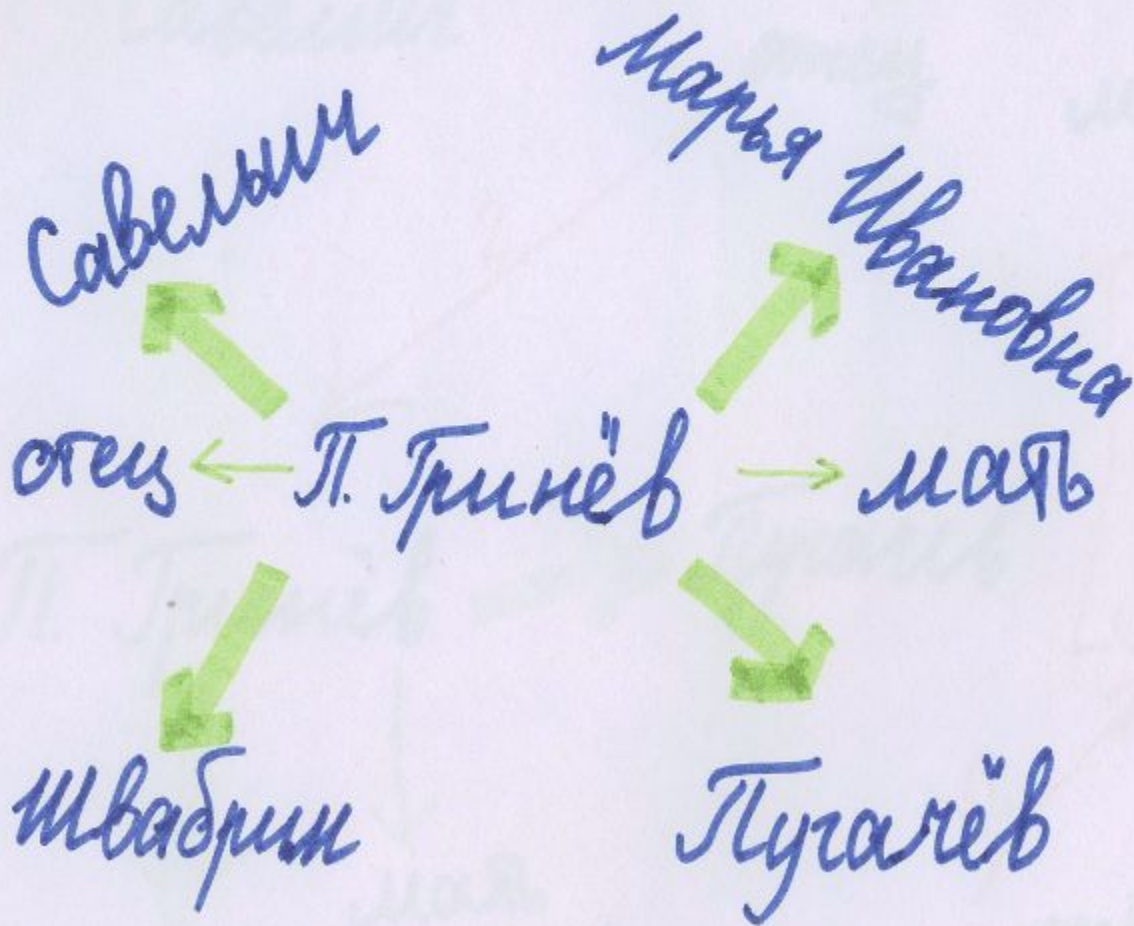 Савельич
Марья Ивановна
отец П. Гринёв мать
Швабрин
Пугачёв